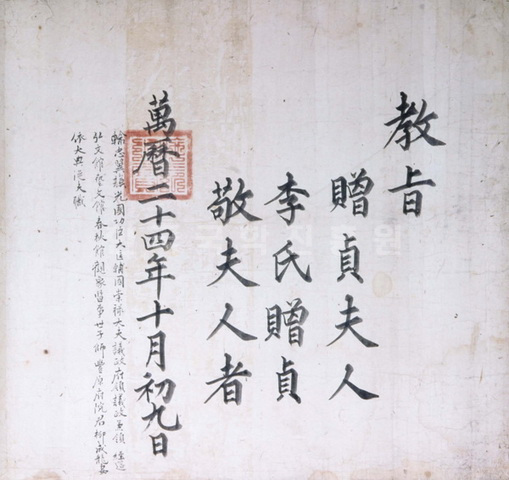 教旨
贈貞夫人
李氏贈貞
敬夫人者
萬曆二十四年十月初九日
輸忠翼謨光國功臣大匡輔國崇祿大夫議政府領議政兼領 經筵
弘文館藝文館春秋館觀象監事 世子師豐原府院君柳成龍
依大典從夫職